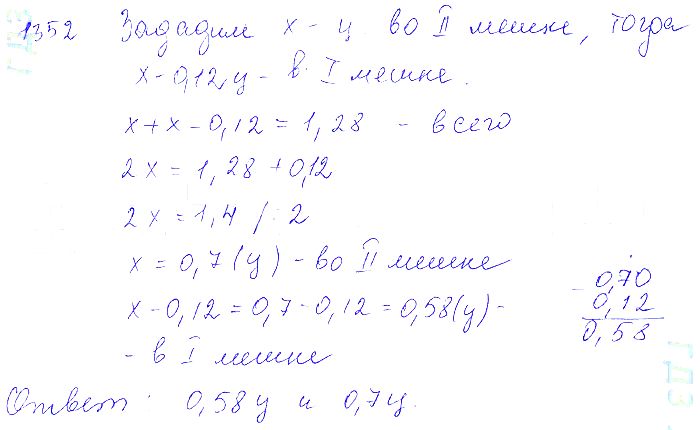 1352 Зададим x - ц во II мешке, тогда
x - 0,12 ц - в I мешке.
x + x - 0,12 = 1,28 - всего
2x = 1,28 + 0,12
2x = 1,4 /: 2
x = 0,7 (ц) - во II мешке
x - 0,12 = 0,7 - 0,12 = 0,58 (ц) -
- в I мешке
- 0,70
0,12
0,58
Ответ: 0,58 ц и 0,7 ц.